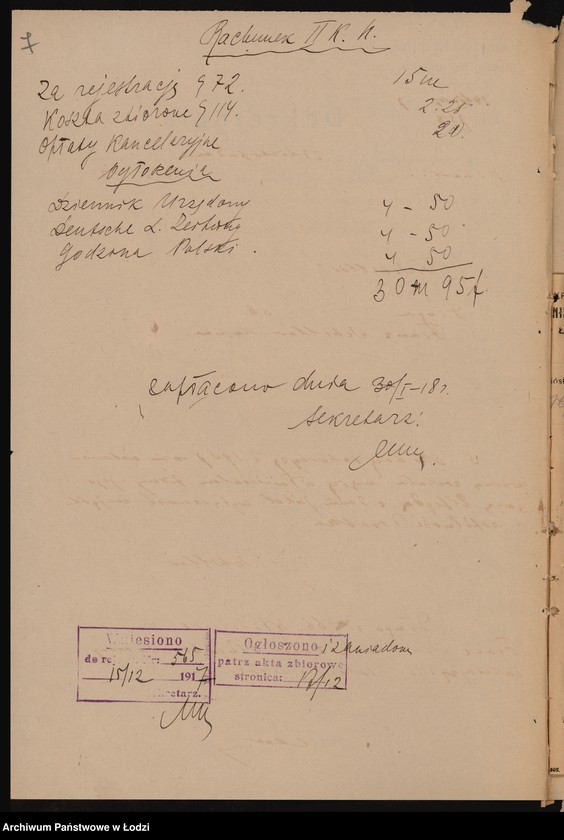 7
Rachunek II K. H.
Za rejestrację § 72. 15 m
Koszta zbiorowe § 114. 2.25
Opłaty Kancelaryjne 20.
Ogłoszenia
Dziennik Urzędowy 4 - 50
Deutsche L. Zeitung 4 - 50
Godzina Polski. 4 50
30 m 95 f.
Zapłacono dnia 30/I-18 r.
Sekretarz:
Wniesiono
de re 565
15/12 1917
retarz.
Ogłoszono i zawiadom
patrz akta zbiorowe
stronica: /12
Archiwum Państwowe w Łodzi